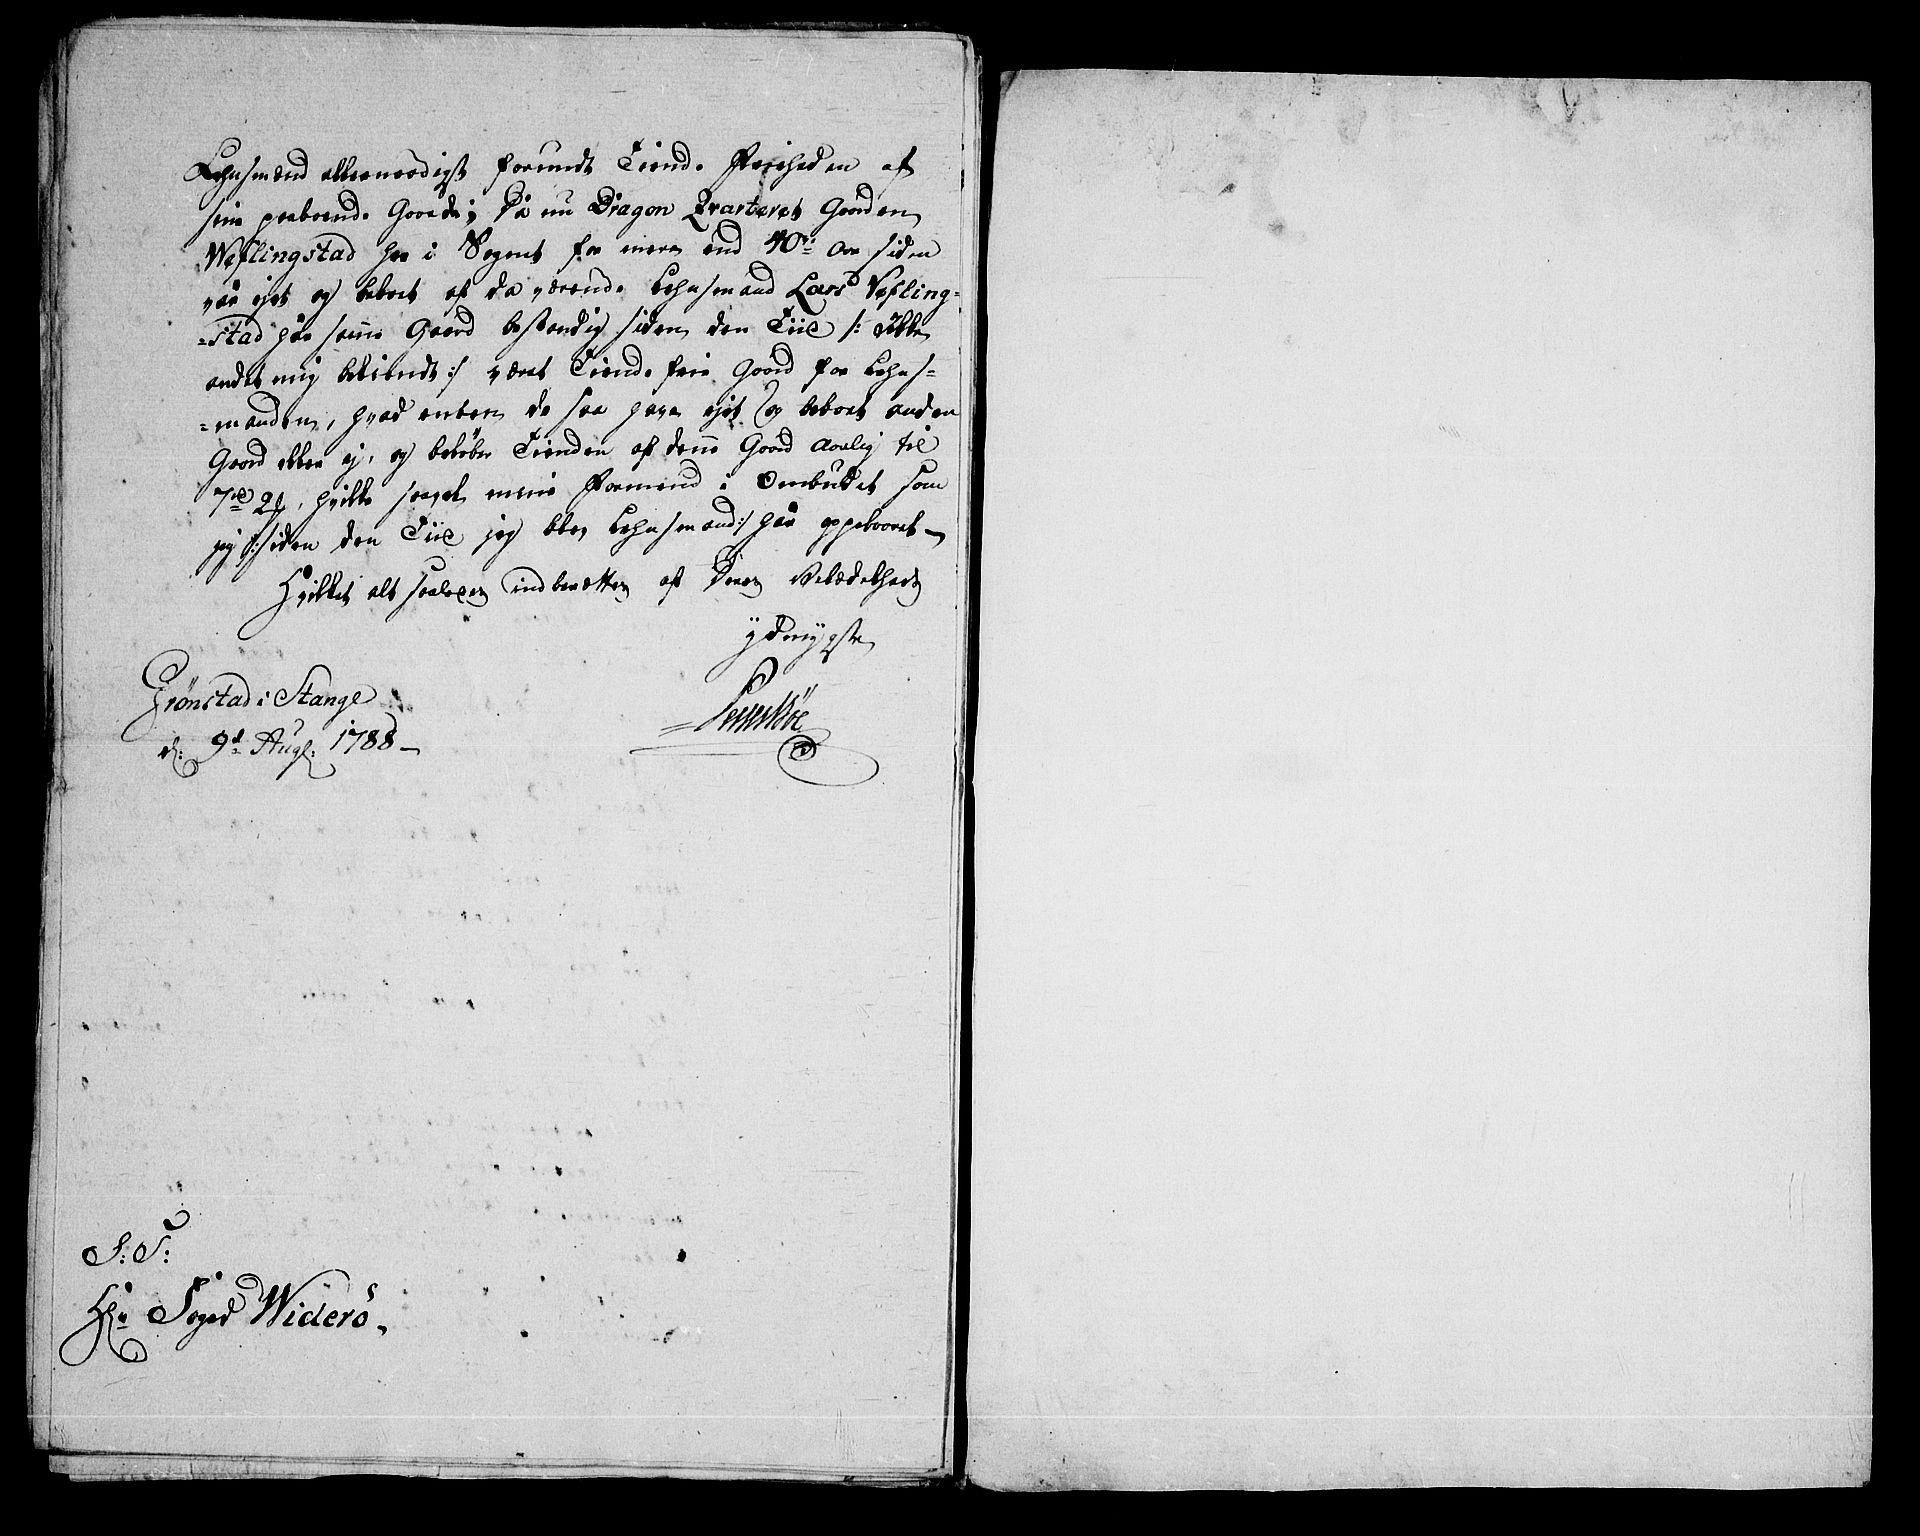 Lehnsmænd allernaadigst forundt Tiende Friheden af
sin paaboende Gaard; Da nu Dragon Qvarteret Gaarden
Wæflingstad her i Sognet for mere end 40ve aar siden
var ejet og beboet af da værende Lehnsmand Lars Væfling-
=stad har samme Gaard bestandig siden den Tiid /: Ikke
andet mig bekiendt :/ været Tiende frie Gaard for Lehns=
=manden, hvad enten de saa have ejet og beboet anden
Gaard eller ej, og beløber Tienden af denne Gaard aarlig til
7rd 2 , hvilke saavel mine Formænd i Ombudet som
jeg /: siden den Tiid jeg blev Lehnsmand :/ har oppebaaret –
Hvilket alt saaledes indberettes af Deres Velædelheds
ydmygste
Grønstad i Stange
d: 9d Augs: 1788 –
S: T:
Hr Foged Widerø